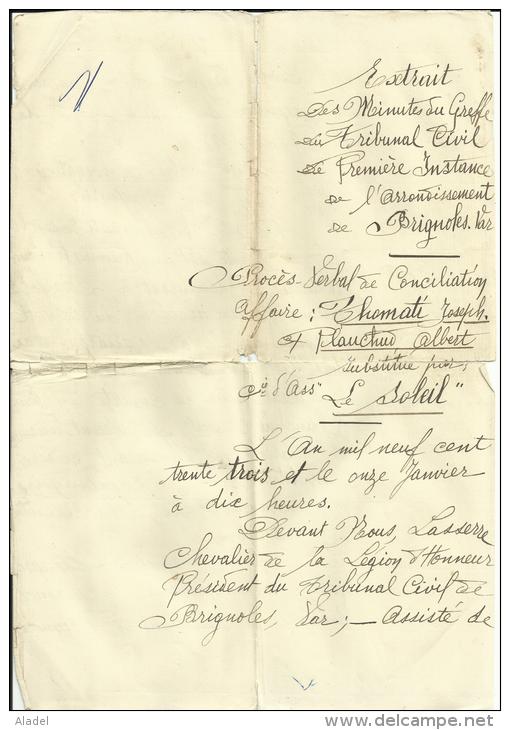 Extrait
Des Minutes du Greffe
du Tribunal Civil
de Première Instance
de l'arrondissement
de Brignoles. Var
Procès-Verbal de Conciliation
Affaire: Thomati Joseph.
Planchud Albert
substitué par,
Cie d'Ass "Le Soleil"
L'An mil neuf cent
trente trois et le onze Janvier
à dix heures.
Devant Nous, Lasserre
Chevalier de la Légion d'Honneur
Président du Tribunal Civil de
Brignoles, Var; — Assisté de
Aladel
www.delcampe.net